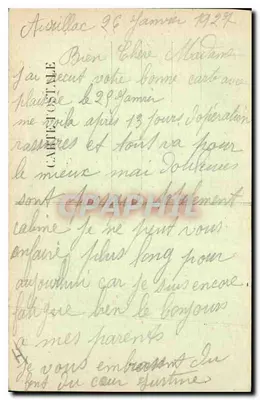 Aurillac 26 Janvier 1927
Bien Chère Madame
J'ai recut votre bonne carte avec
plaisire le 25 Janvier
me voila après 13 jours d'opération
rassurés et tout va pour
le mieux mai douleures
sont
calme je ne peut vous
enfaire plus long pour
aujourdhui car je suis encore
fatiguee bien le bonjours
a mes parents
je vous embrassent du
du cœur Justine
CARTE POSTALE
CPAPHIL